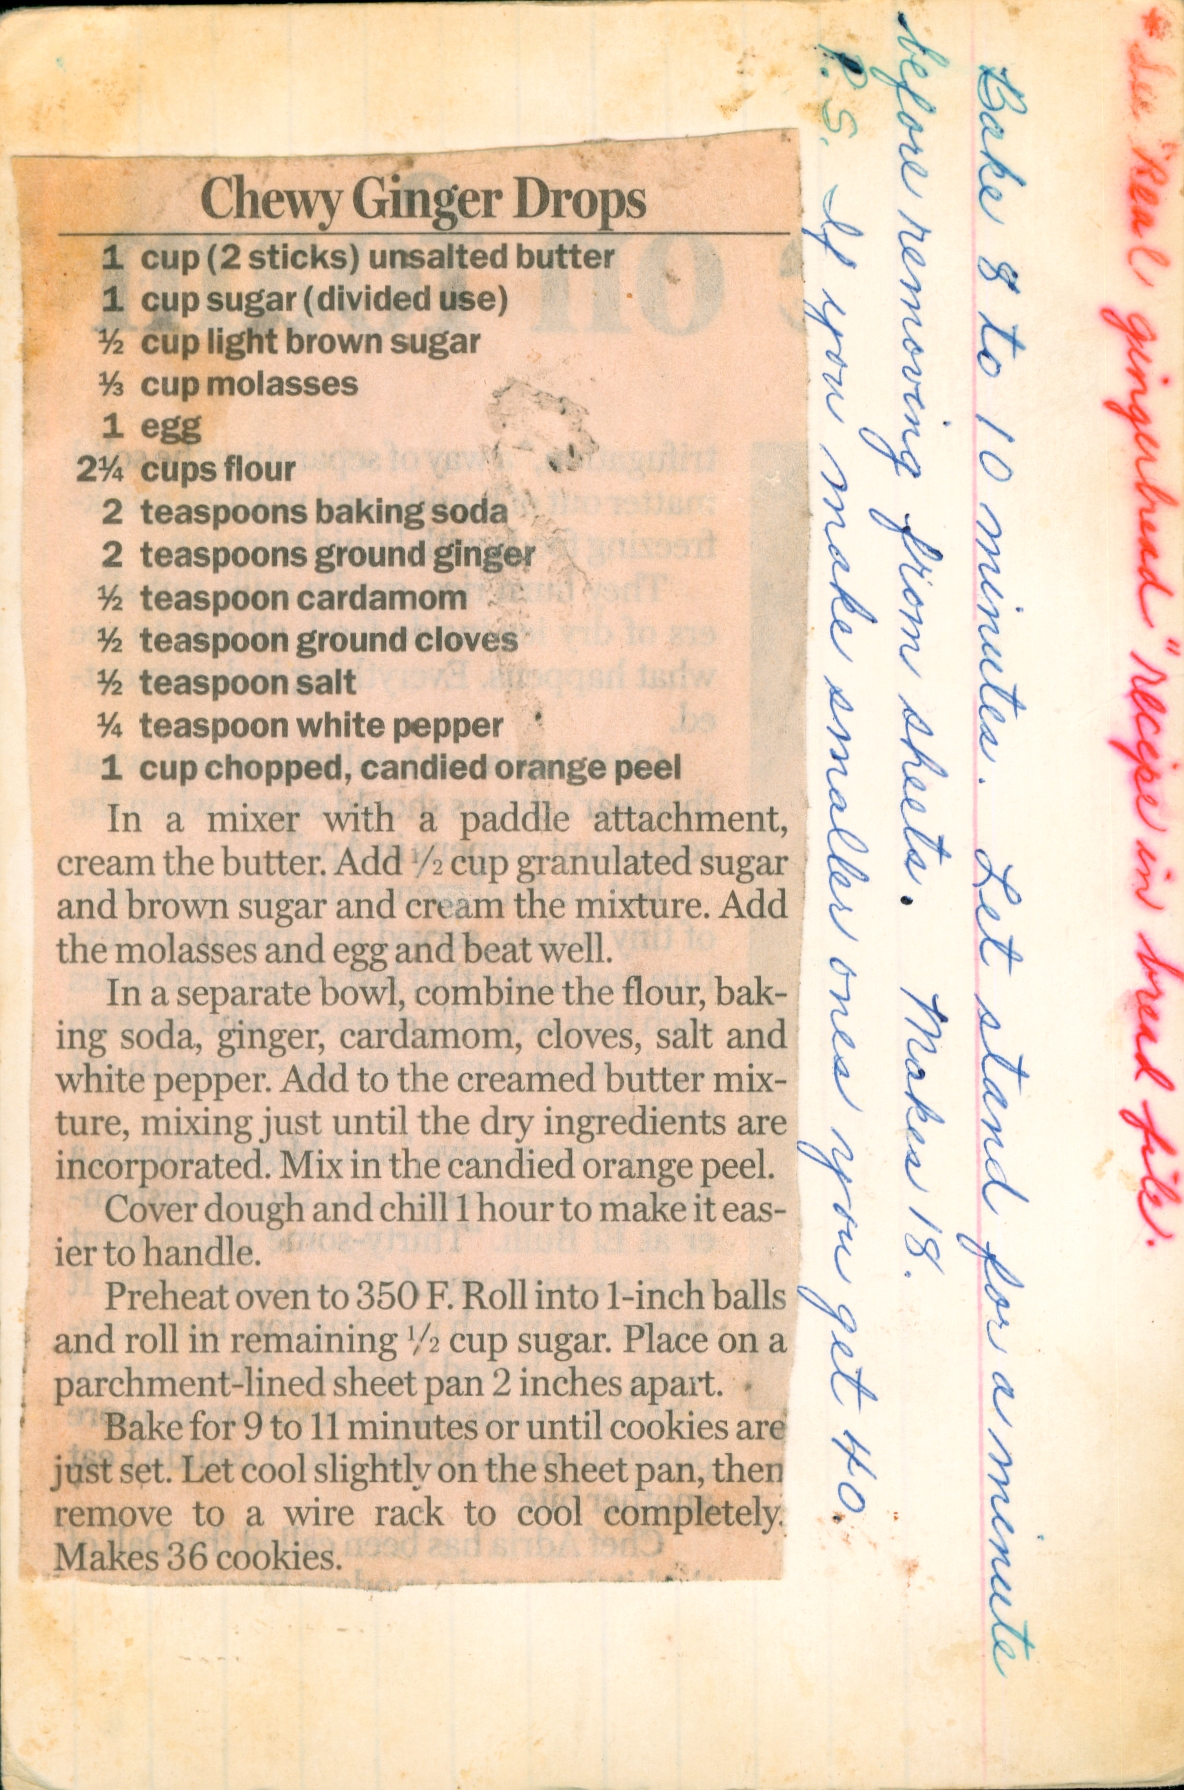 Chewy Ginger Drops
1 cup (2 sticks) unsalted butter
1 cup sugar (divided use)
½ cup light brown sugar
⅓ cup molasses
1 egg
2¼ cups flour
2 teaspoons baking soda
2 teaspoons ground ginger
½ teaspoon cardamom
½ teaspoon ground cloves
½ teaspoon salt
¼ teaspoon white pepper
1 cup chopped, candied orange peel
In a mixer with a paddle attachment,
cream the butter. Add ½ cup granulated sugar
and brown sugar and cream the mixture. Add
the molasses and egg and beat well.
In a separate bowl, combine the flour, bak-
ing soda, ginger, cardamom, cloves, salt and
white pepper. Add to the creamed butter mix-
ture, mixing just until the dry ingredients are
incorporated. Mix in the candied orange peel.
Cover dough and chill 1 hour to make it eas-
ier to handle.
Preheat oven to 350 F. Roll into 1-inch balls
and roll in remaining ½ cup sugar. Place on a
parchment-lined sheet pan 2 inches apart.
Bake for 9 to 11 minutes or until cookies are
just set. Let cool slightly on the sheet pan, then
remove to a wire rack to cool completely.
Makes 36 cookies.
*See "Real gingerbread" recipe in bread file.
Bake 8 to 10 minutes. Let stand for a minute
before removing from sheets. Makes 18.
P.S. If you make smaller ones you get 40.